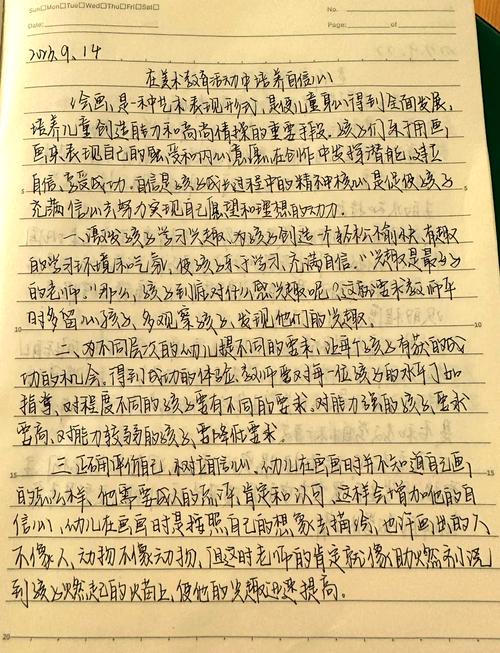 Sun□Mon□Tue□Wed□Thu□Fri□Sat□
No.
Date:
Page: of
2023.9.14
在美术教育活动中培养自信心
绘画,是一种艺术表现形式,是使儿童身心得到全面发展,
培养儿童创造能力和高尚情操的重要手段。孩子们乐于用画
画来表现自己的感受和内心意愿,在创作中发挥潜能、建立
自信、享受成功。自信是孩子成长过程中的精神核心,是促使孩子
充满信心去努力实现自己愿望和理想的动力。
一、激发孩子学习兴趣。为孩子创造一个轻松愉快、有趣
的学习环境和气氛,使孩子乐于学习、充满自信。"兴趣是最好
的老师。"那么,孩子到底对什么感兴趣呢?这就要求教师平
时多留心孩子,多观察孩子,发现他们的兴趣。
二、对不同层次的幼儿提不同的要求,让每个孩子有获的成
功的机会。得到成功的体验,教师要对每一位孩子的水平了如
指掌,对程度不同的孩子要有不同的要求。对能力强的孩子,要求
要高,对能力较弱的孩子,要降低要求。
三、正确评价自己,树立自信心,幼儿在画画时并不知道自己画
的怎么样,他需要成人的点评、肯定和认可,这样会增加他的自
信心,幼儿在画画时是按照自己的想象去描绘,也许画出的人
不像人,动物不像动物,但这时老师的肯定就像助燃剂浇
到孩子燃起的火苗上,使他的兴趣迅速提高。
5
5
10
10
15
15
20